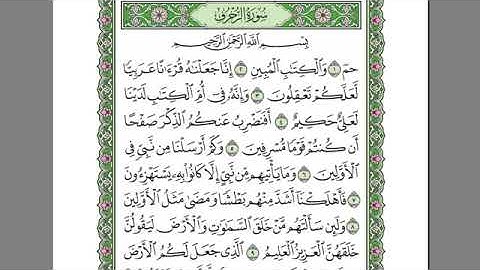 سُورَةُ الزُّخْرُفِ
بِسْمِ اللَّهِ الرَّحْمَٰنِ الرَّحِيمِ
حمٓ ١ وَالْكِتَٰبِ الْمُبِينِ ٢ إِنَّا جَعَلْنَٰهُ قُرْءَٰنًا عَرَبِيًّا
لَّعَلَّكُمْ تَعْقِلُونَ ٣ وَإِنَّهُۥ فِىٓ أُمِّ الْكِتَٰبِ لَدَيْنَا
لَعَلِىٌّ حَكِيمٌ ٤ أَفَنَضْرِبُ عَنكُمُ الذِّكْرَ صَفْحًا
أَن كُنتُمْ قَوْمًا مُّسْرِفِينَ ٥ وَكَمْ أَرْسَلْنَا مِن نَّبِىٍّ فِى
الْأَوَّلِينَ ٦ وَمَا يَأْتِيهِم مِّن نَّبِىٍّ إِلَّا كَانُوا۟ بِهِۦ يَسْتَهْزِءُونَ
٧ فَأَهْلَكْنَآ أَشَدَّ مِنْهُم بَطْشًا وَمَضَىٰ مَثَلُ الْأَوَّلِينَ
٨ وَلَئِن سَأَلْتَهُم مَّنْ خَلَقَ السَّمَٰوَٰتِ وَالْأَرْضَ لَيَقُولُنَّ
خَلَقَهُنَّ الْعَزِيزُ الْعَلِيمُ ٩ الَّذِى جَعَلَ لَكُمُ الْأَرْضَ